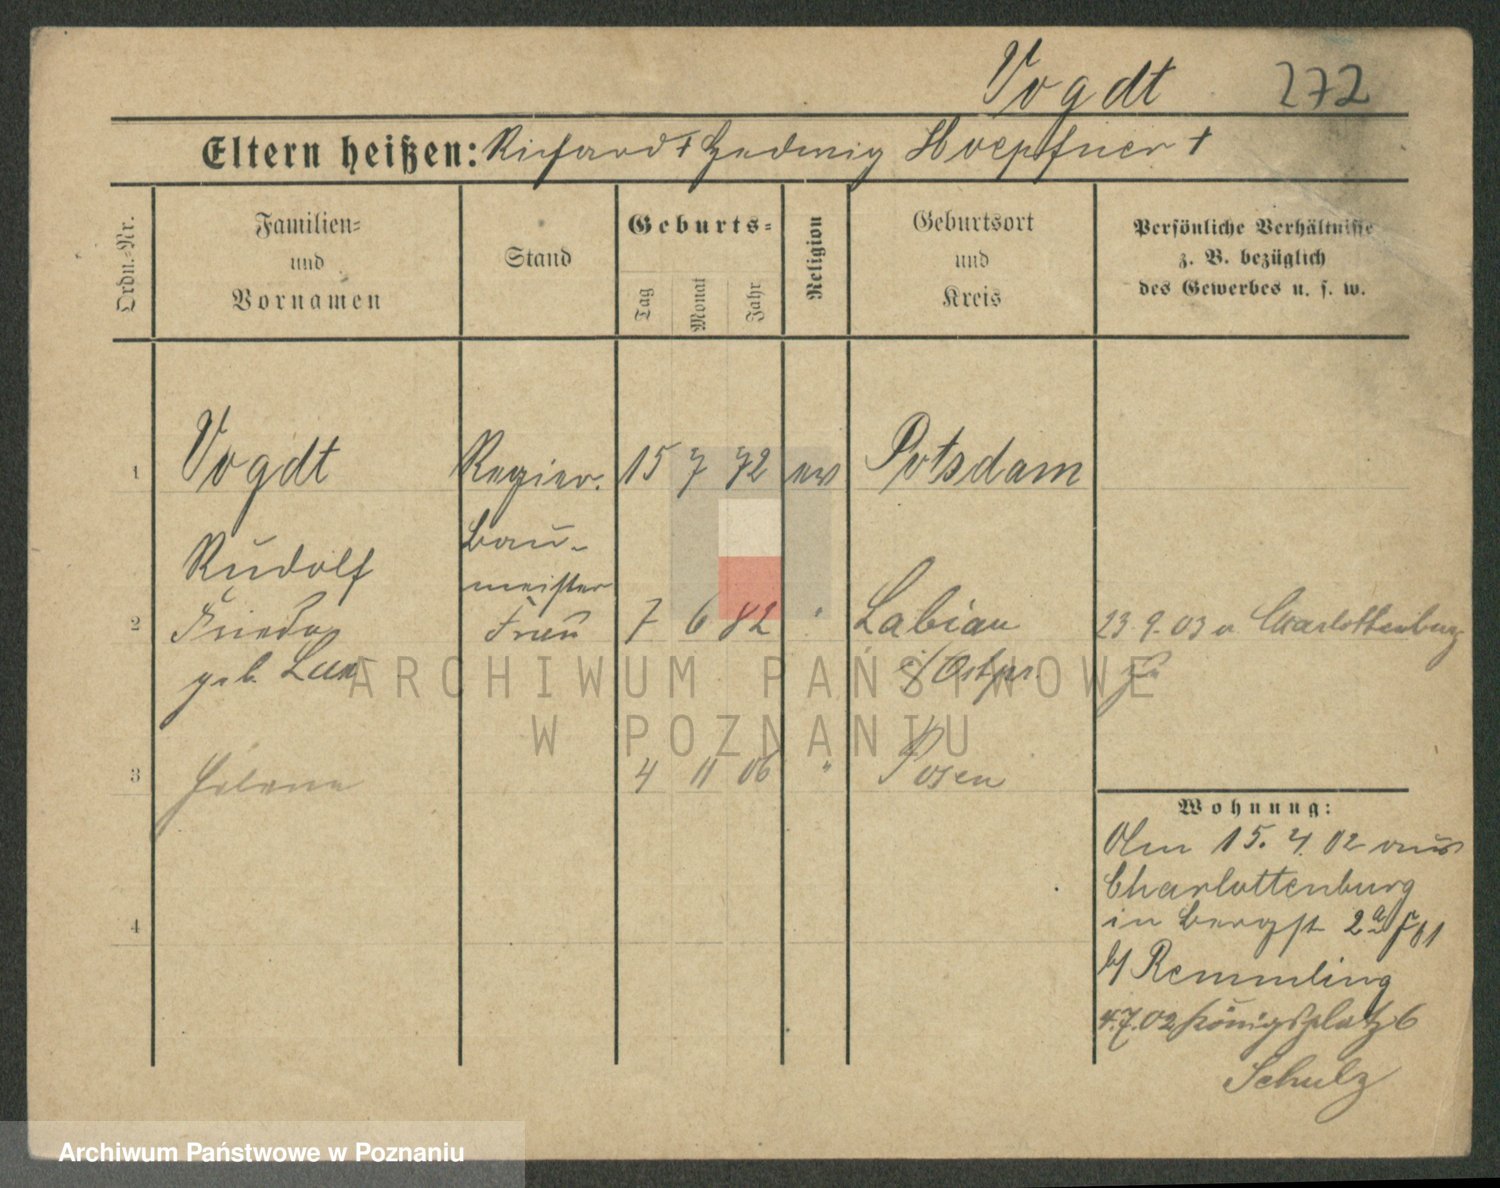 Vogdt 272
Eltern heißen: Richard † Hedwig Hoepfner †
Ordn.-Nr.
Familien-
und
Vornamen
Stand
Geburts-
Tag
Monat
Jahr
Religion
Geburtsort
und
Kreis
Persönliche Verhältnisse
z. B. bezüglich
des Gewerbes u. s. w.
1 Vogdt Regier. 15 7 72 ev Potsdam
Rudolf Bau-
meister
2 Frieda Frau 7 6 82 " Labiau 23.9.03 v Charlottenburg
geb. i/Ostpr. zu
3 Helene 4 11 06 " Posen
Wohnung:
Am 15.4.02 aus
Charlottenburg
4 in Bergst 2a
b/ Remmling
4.7.02 Königsplatz 6
Schulz
ARCHIWUM PAŃSTWOWE
W POZNANIU
Archiwum Państwowe w Poznaniu